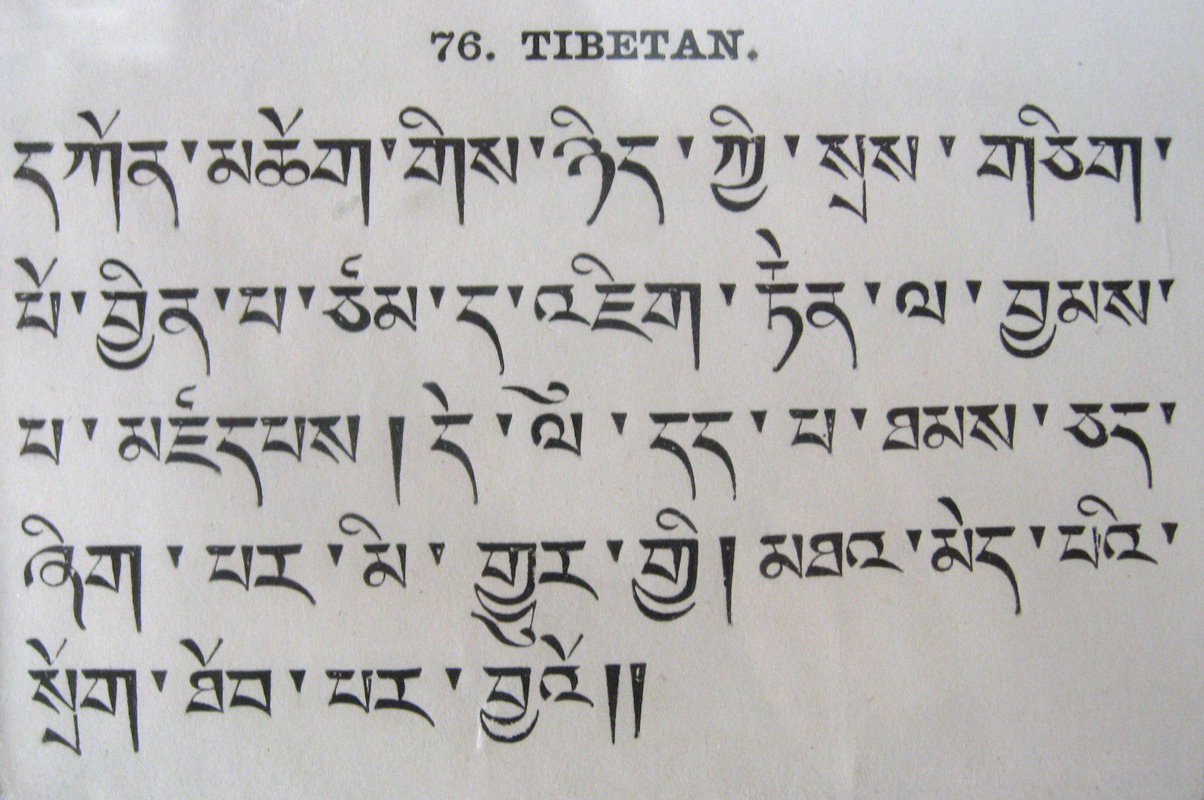 དཀོན་མཆོག་གིས་ཉིད་ཀྱི་སྲས་གཅིག་
པོ་བྱིན་པ་ཙམ་ད་འཇིག་རྟེན་ལ་བྱམས་
པ་མཛདཔས།དེ་ལཽ་དད་པ་ཐམས་ཅད་
ཞིག་པར་མི་གྱུར་གྱི།མཐའ་མེད་པའི་
སྲོག་ཐོབ་པར་བྱའོ།།